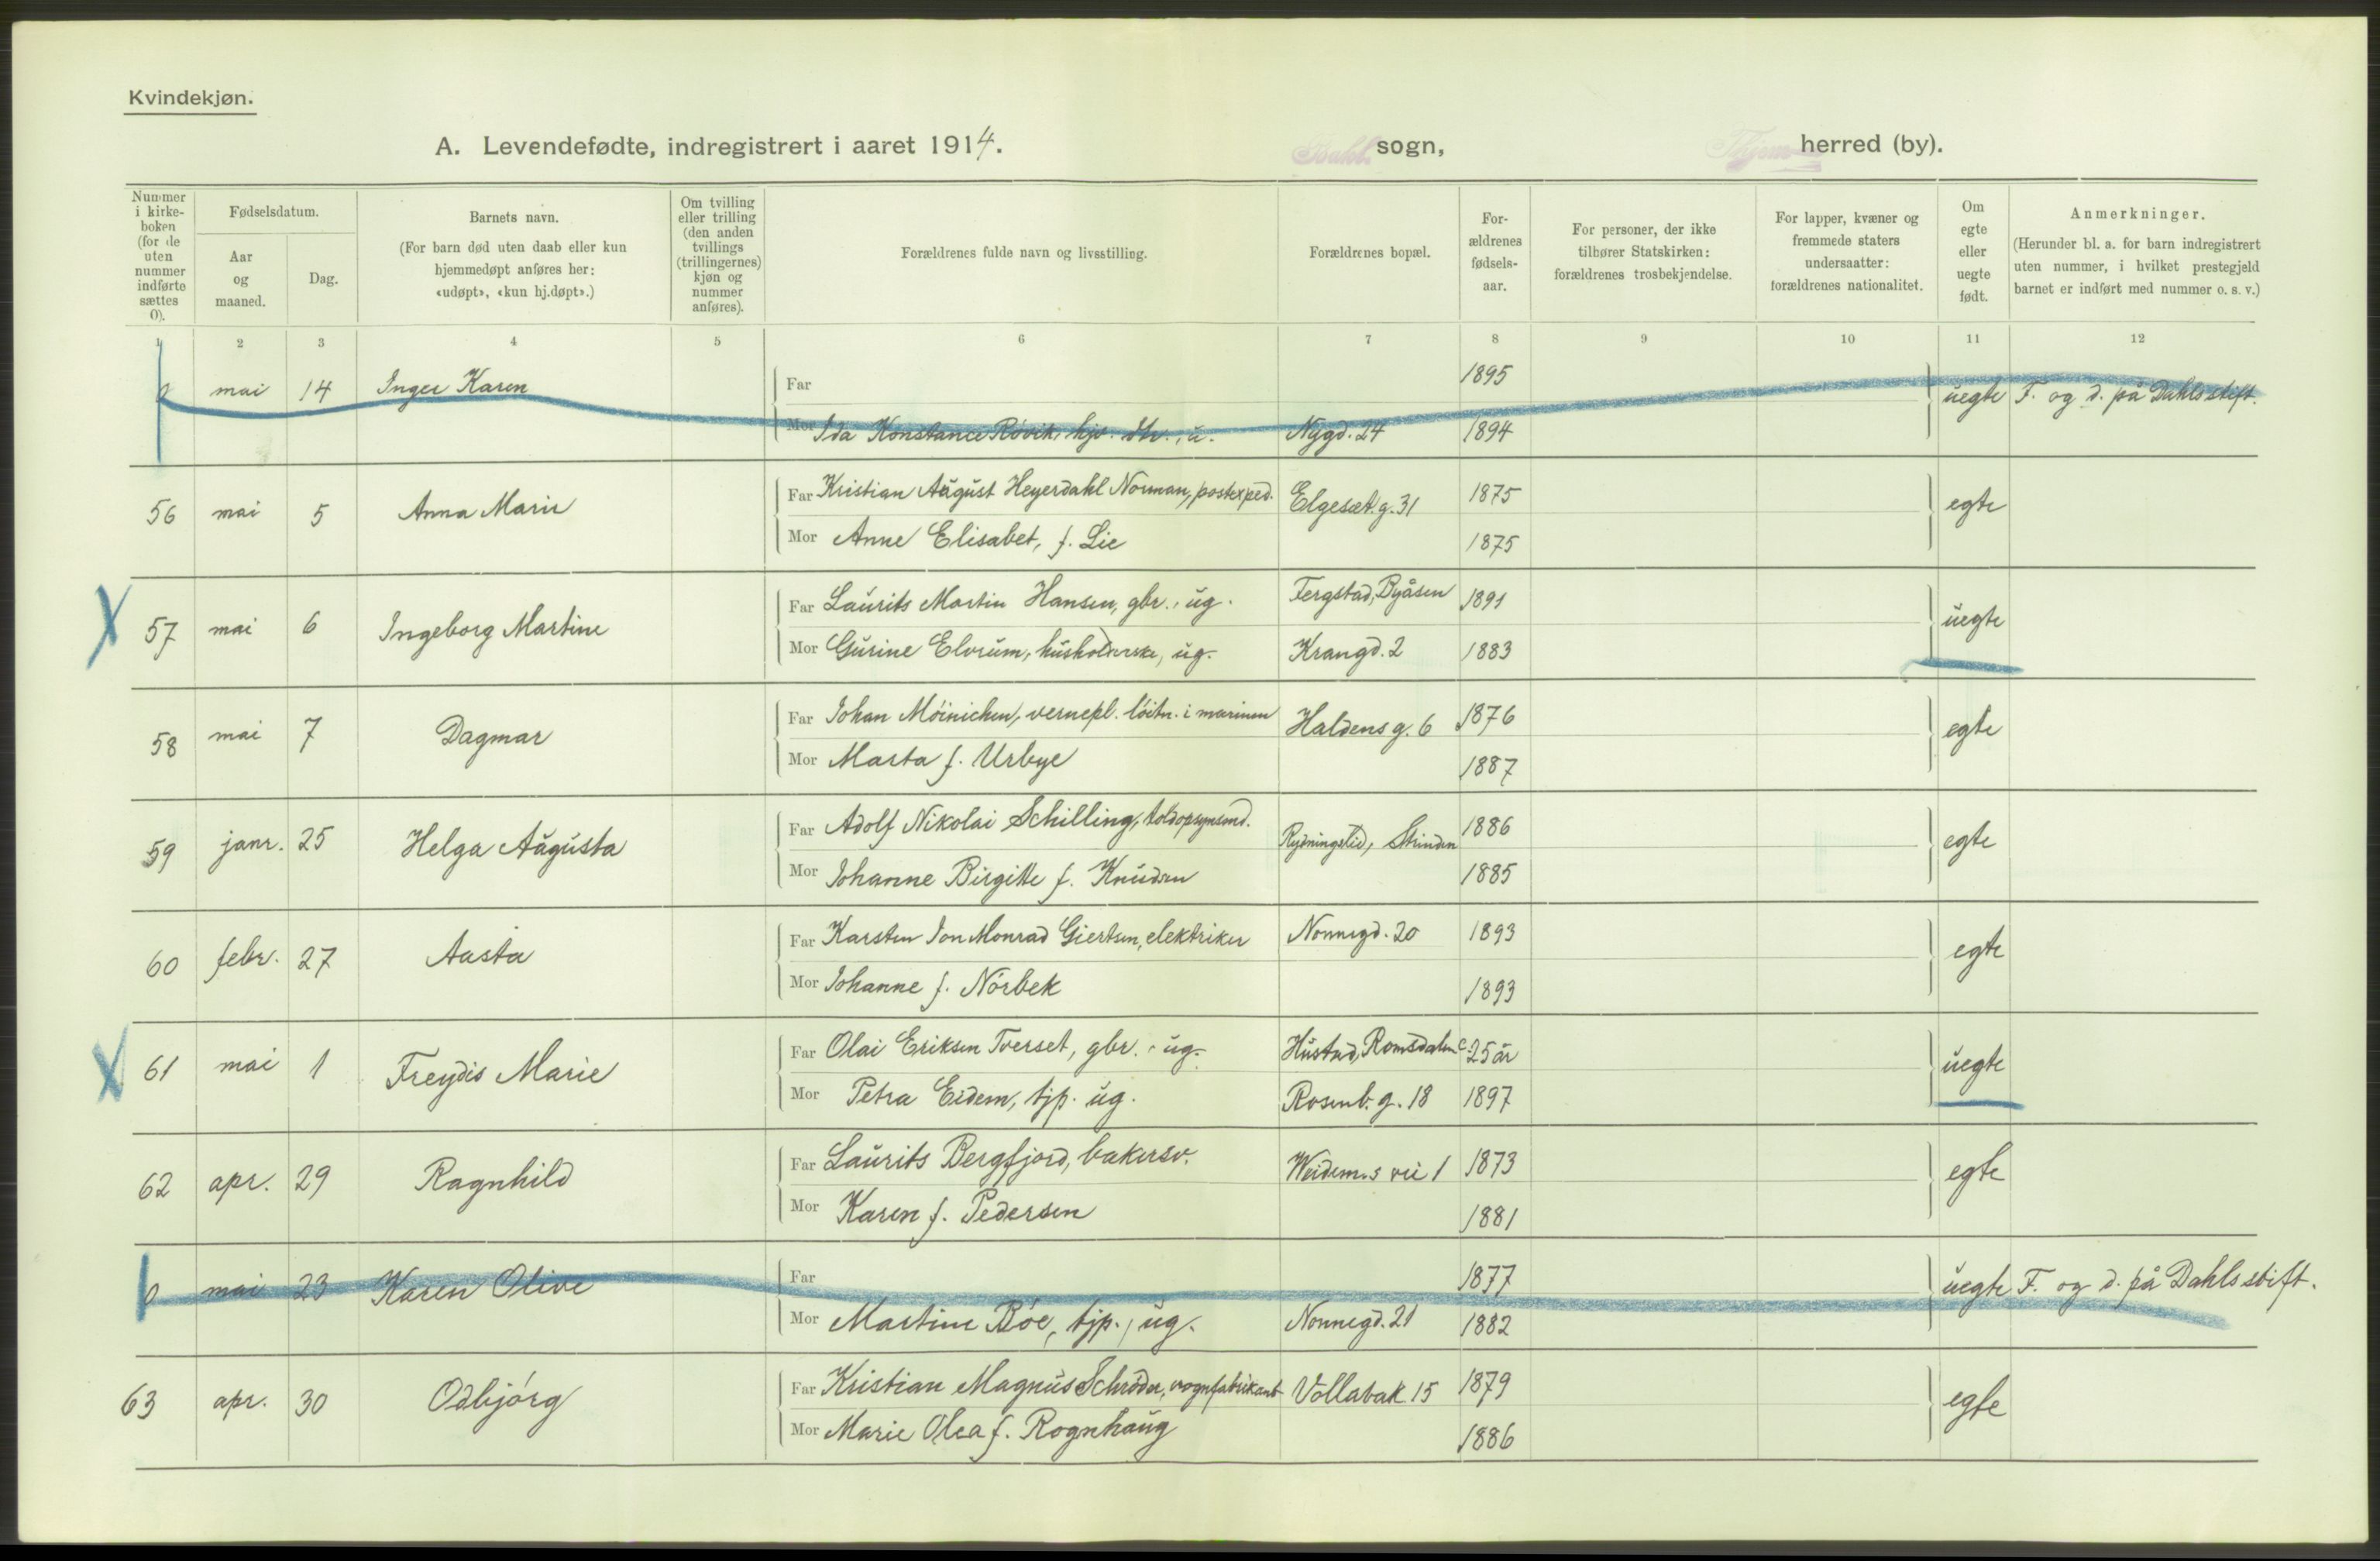 Kvindekjøn.
A. Levendefødte, indregistrert i aaret 1914.
Bakl. sogn,
herred (by).
Nummer i kirke-boken (for de uten nummer indførte sættes 0).
Fødselsdatum.
Aar og maaned.
Dag.
Barnets navn.
(For barn død uten daab eller kun hjemmedøpt anføres her: «udøpt», «kun hj.døpt».)
Om tvilling eller trilling (den anden tvillings (trillingernes) kjøn og nummer anføres).
Forældrenes fulde navn og livsstilling.
Forældrenes bopæl.
For-ældrenes fødsels-aar.
For personer, der ikke tilhører Statskirken: forældrenes trosbekjendelse.
For lapper, kvæner og fremmede staters undersaatter: forældrenes nationalitet.
Om egte eller uegte født.
Anmerkninger.
(Herunder bl. a. for barn indregistrert uten nummer, i hvilket prestegjeld barnet er indført med nummer o. s. v.)
1 2 3 4 5 6 7 8 9 10 11 12
0 mai 14 Inger Karen Far 1895 uegte F. og d. på Dahls stift.
Mor Ida Konstance Røvik, hjv. dtr., u. Nygd. 24 1894
56 mai 5 Anna Marie Far Kristian August Heyerdahl Norman, postexped. Elgesæt.g. 31 1875 egte
Mor Anne Elisabet, f. Lie 1875
57 mai 6 Ingeborg Martine Far Laurits Martin Hansen, gbr., ug. Fergstad, Byåsen 1891 uegte
Mor Gurine Elvrum, husholderske, ug. Krangd. 2 1883
58 mai 7 Dagmar Far Johan Möinichen, vernepl. löitn. i marinen Haldens g. 6 1876 egte
Mor Marta f. Urbye 1887
59 janr. 25 Helga Augusta Far Adolf Nikolai Schilling, toldopsynsmd. Rydningslid, Strinden 1886 egte
Mor Johanne Birgitte f. Knudsen 1885
60 febr. 27 Aasta Far Karsten Jon Monrad Giertsen, elektriker Nonnegd. 20 1893 egte
Mor Johanne f. Nörbek 1893
61 mai 1 Freydis Marie Far Olai Eriksen Tverset, gbr., ug. Hustad, Romsdalen c. 25 år uegte
Mor Petra Eidem, tjp. ug. Rosenb. g. 18 1897
62 apr. 29 Ragnhild Far Laurits Bergfjord, bakersv. Weidem.s vei 1 1873 egte
Mor Karen f. Pedersen 1881
0 mai 23 Karen Olive Far 1877 uegte F. og d. på Dahls stift.
Mor Martine Böe, tjp., ug. Nonnegd. 21 1882
63 apr. 30 Odbjörg Far Kristian Magnus Schröder, vognfabrikant Vollabak 15 1879 egte
Mor Marie Olea f. Rognhaug 1886